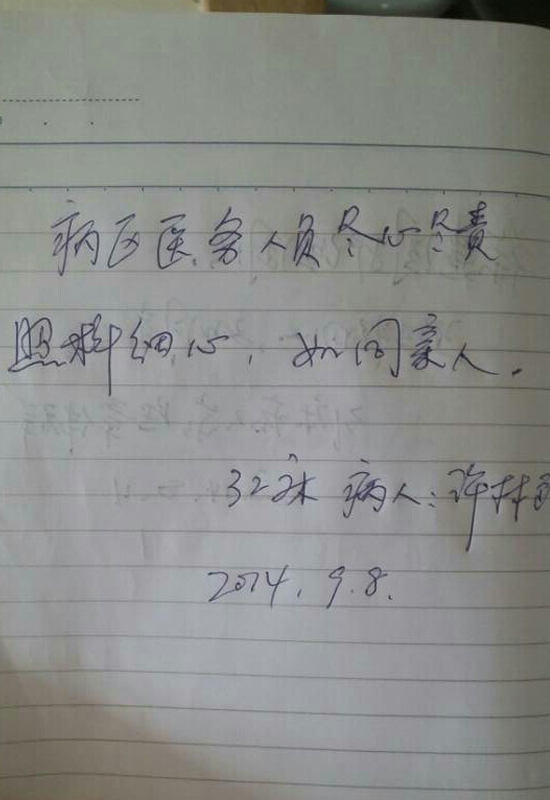 病区医务人员尽心尽责
照料细心，如同亲人.
32床 病人:许林
2014.9.8.